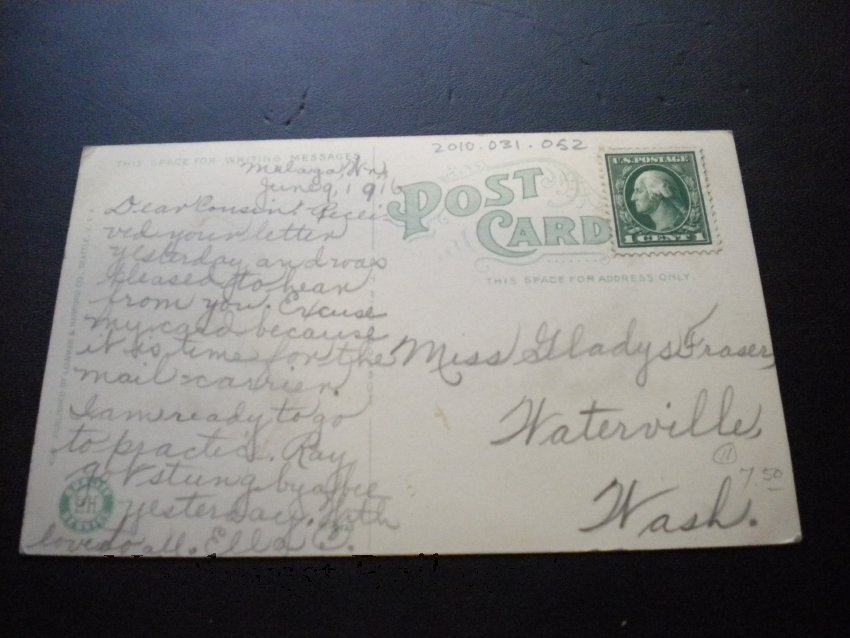 2010.031.052
THIS SPACE FOR WRITING MESSAGES
Malaga, Wn,
June 9, 1916
Dear Cousin: Recei-
ved your letter
yesterday and was
pleased to hear
from you. Excuse
my card because
it is time for the
mail=carrier.
I am ready to go
to practice. Ray
got stung by a bee
yesterday. With
love to all. Ella
POST
CARD
THIS SPACE FOR ADDRESS ONLY.
U.S. POSTAGE
1 CENT 1
Miss Gladys Fraser,
Waterville,
Wash.
11
7.50